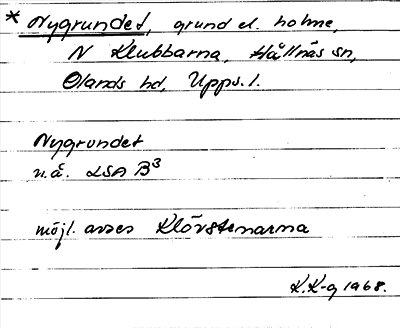 * Nygrundet, grund el. holme,
N Klubbarna, Hållnäs sn,
Olands hd, Upps. l.
Nygrundet
u.å. LSA B³
möjl. avses Klövstenarna
K.K-g 1968.